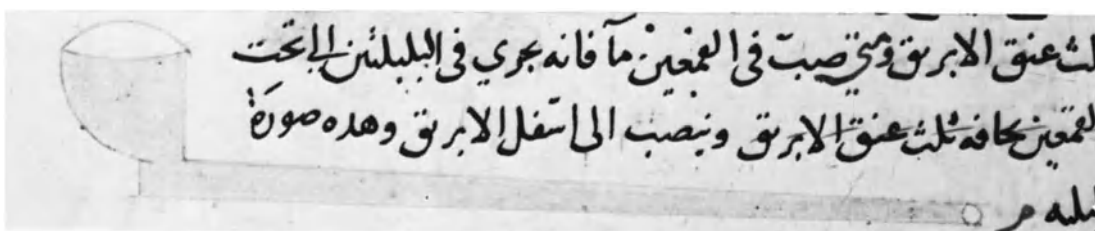 لث عنق الابريق ومتى صبت في القمعين مآ فانه يجري في البلبلتين الى تحت
لقمعين بحافه ثلث عنق الابريق وينصب الى اسفل الابريق وهذه صورة
م